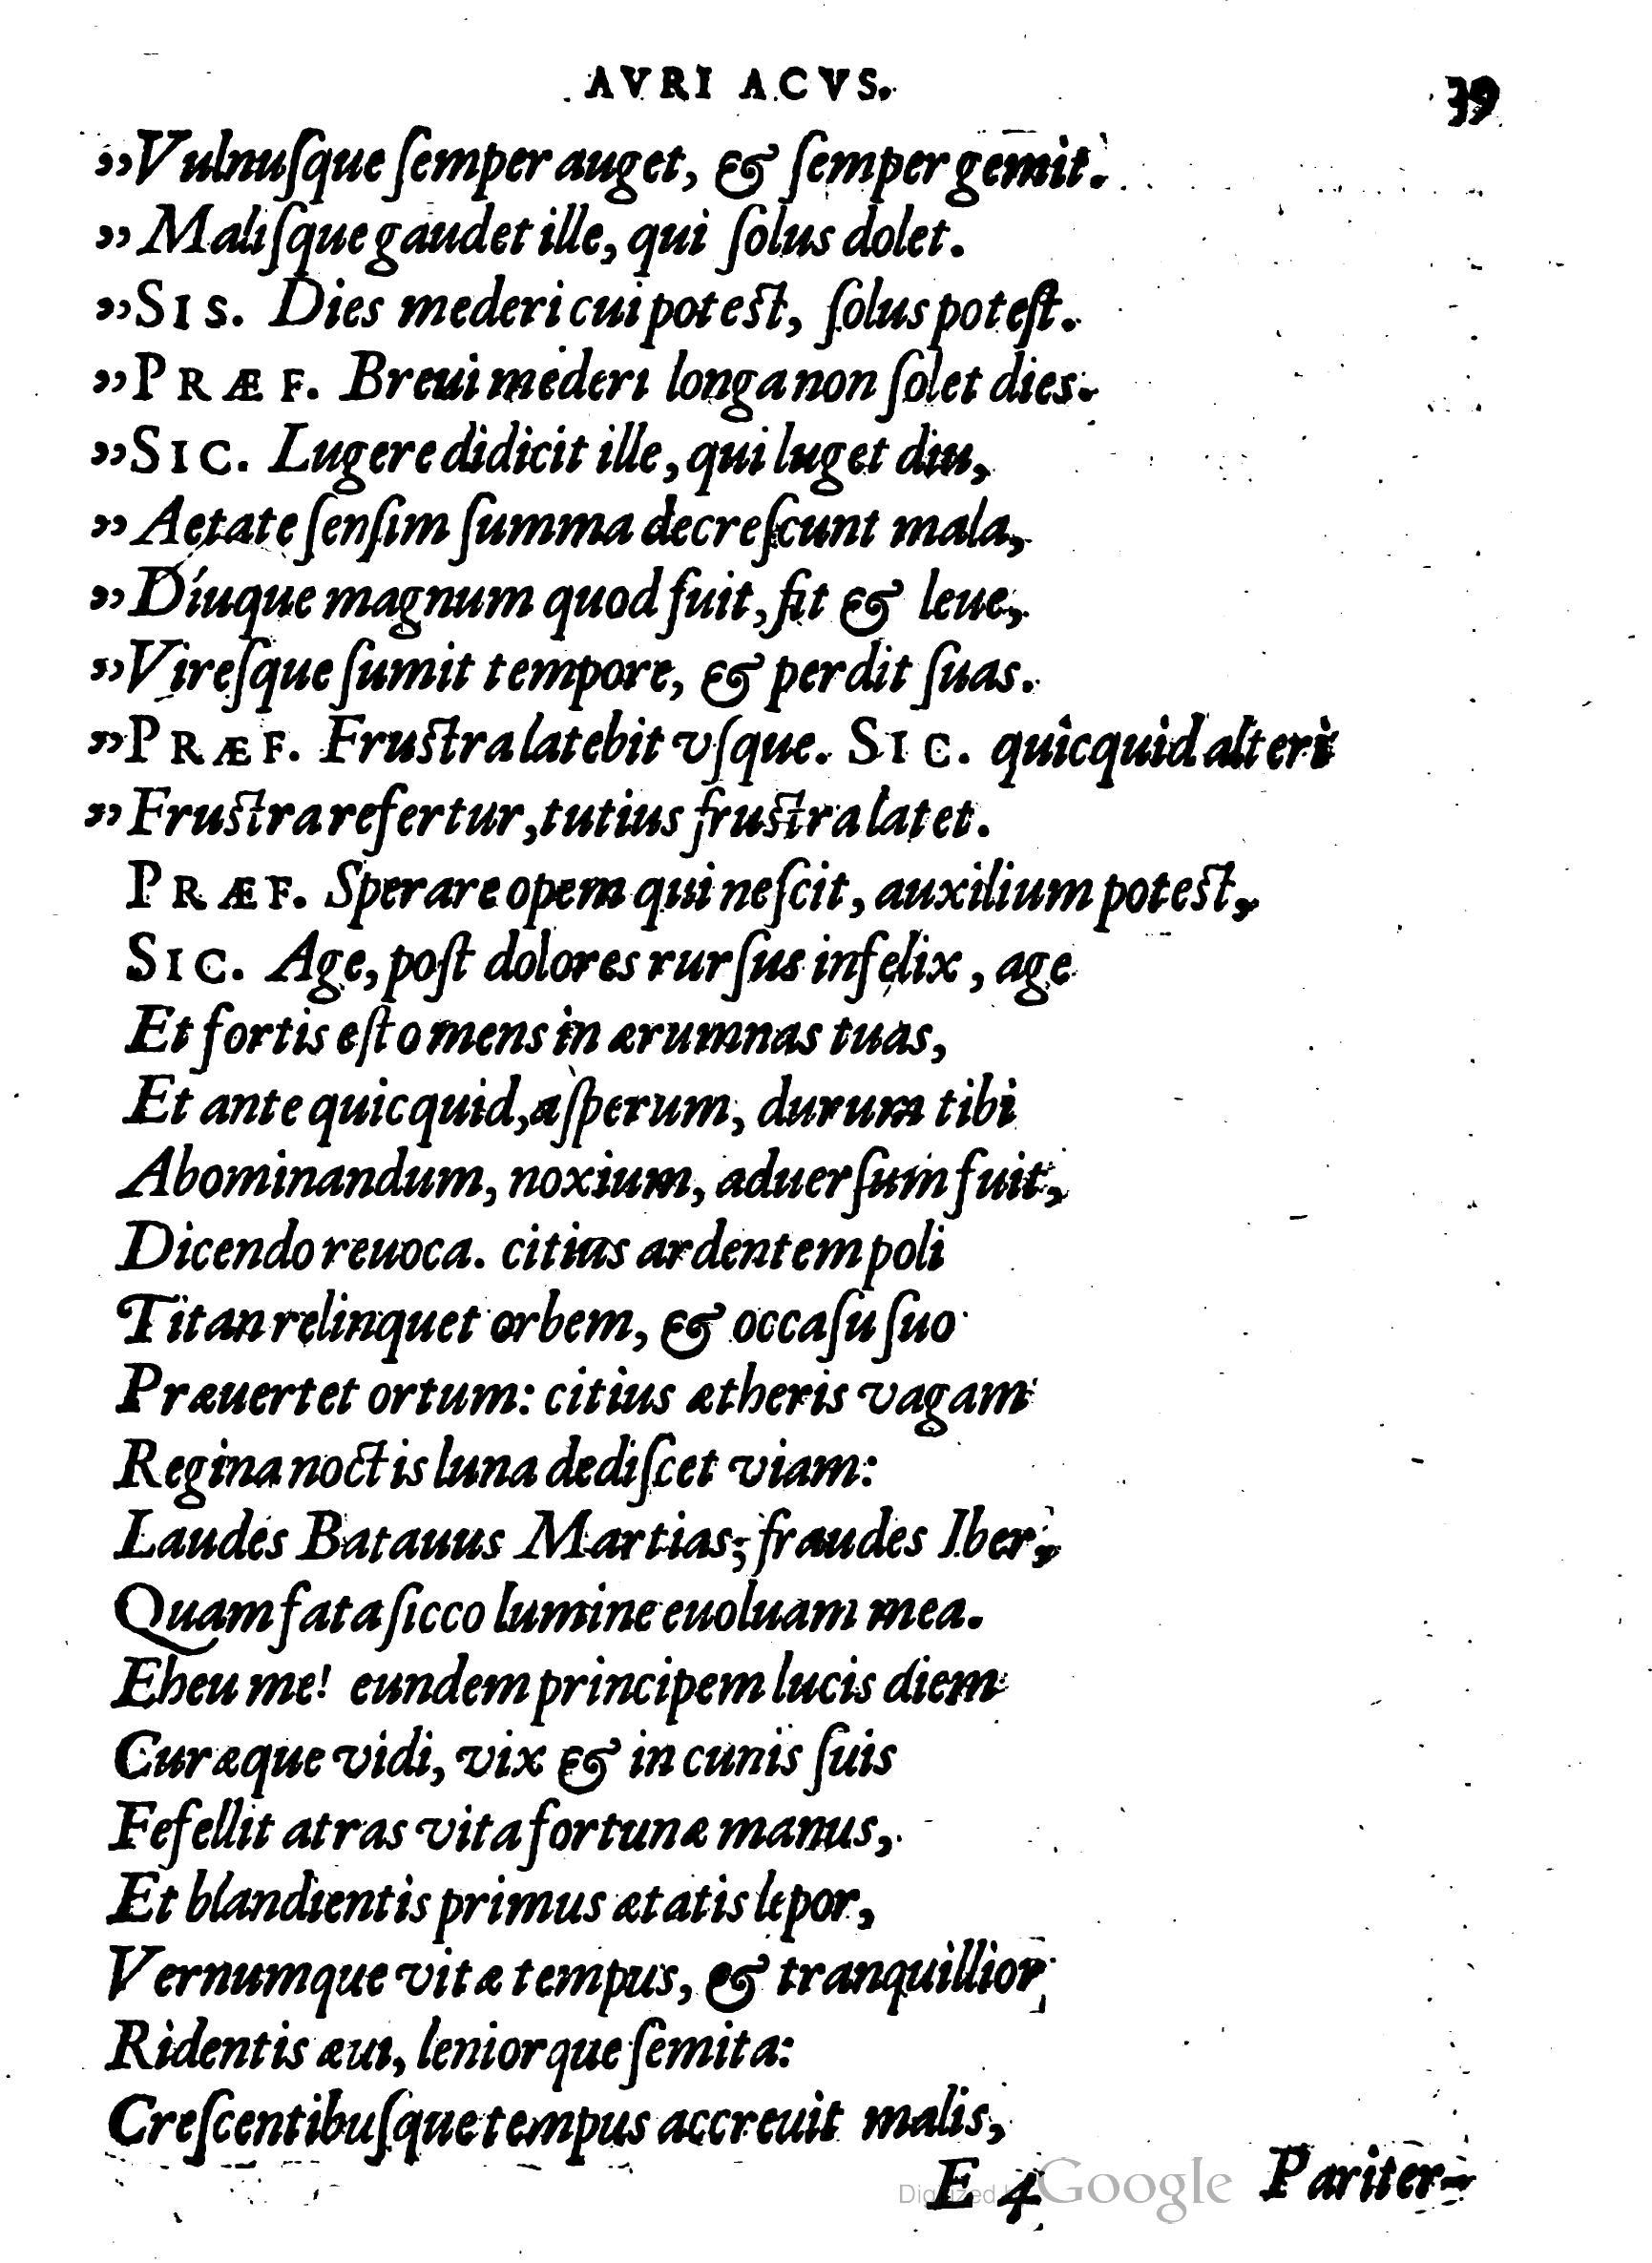 AVRI ACVS. 39
”Vulnuſque ſemper auget, & ſemper gemit.
” Maliſque gaudet ille, qui ſolus dolet.
”SIS. Dies mederi cui poteſt, ſolus poteſt.
”PRÆF. Breui mederi longa non ſolet dies.
”SIC. Lugere didicit ille, qui luget diu,
” Aetate ſenſim ſumma decreſcunt mala,
” Diuque magnum quod fuit, fit & leue,
”Vireſque ſumit tempore, & perdit ſuas.
”PRÆF. Fruſtra latebit vſque. SIC. quicquid alteri
” Fruſtra refertur, tutius fruſtra latet.
PRÆF. Sperare opem qui neſcit, auxilium poteſt,
SIC. Age, poſt dolores rurſus infelix, age
Et fortis eſto mens in ærumnas tuas,
Et ante quicquid, aſperum, durum tibi
Abominandum, noxium, aduerſum fuit,
Dicendo reuoca. citius ardentem poli
Titan relinquet orbem, & occaſu ſuo
Præuertet ortum: citius ætheris vagam
Regina noctis luna dediſcet viam:
Laudes Batauus Martias; fraudes Iber,
Quam fata ſicco lumine euoluam mea.
Eheu me! eundem principem lucis diem
Curæque vidi, vix & in cunis ſuis
Fefellit atras vita fortunæ manus,
Et blandientis primus ætatis lepor,
Vernumque vitæ tempus, & tranquillior
Ridentis æui, leniorque ſemita:
Creſcentibuſque tempus accreuit malis,
E 4 Pariter-
Digitized by Google